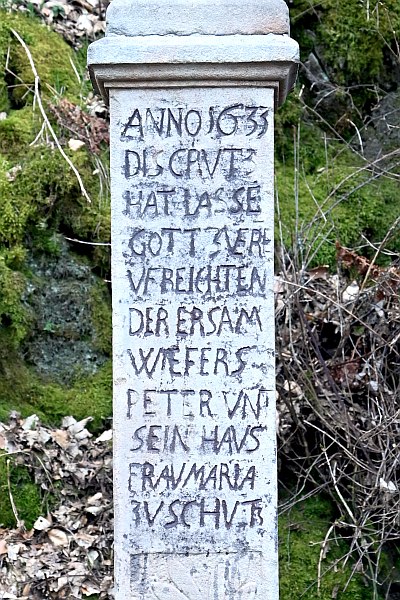 ANNO 1633
DIS CRVTZ
HAT LASSE
GOTT ZVER
VFREICHTEN
DER ERSAM
WIEFERS
PETER VNT
SEIN HAVS
FRAV MARIA
ZV SCHVTZ